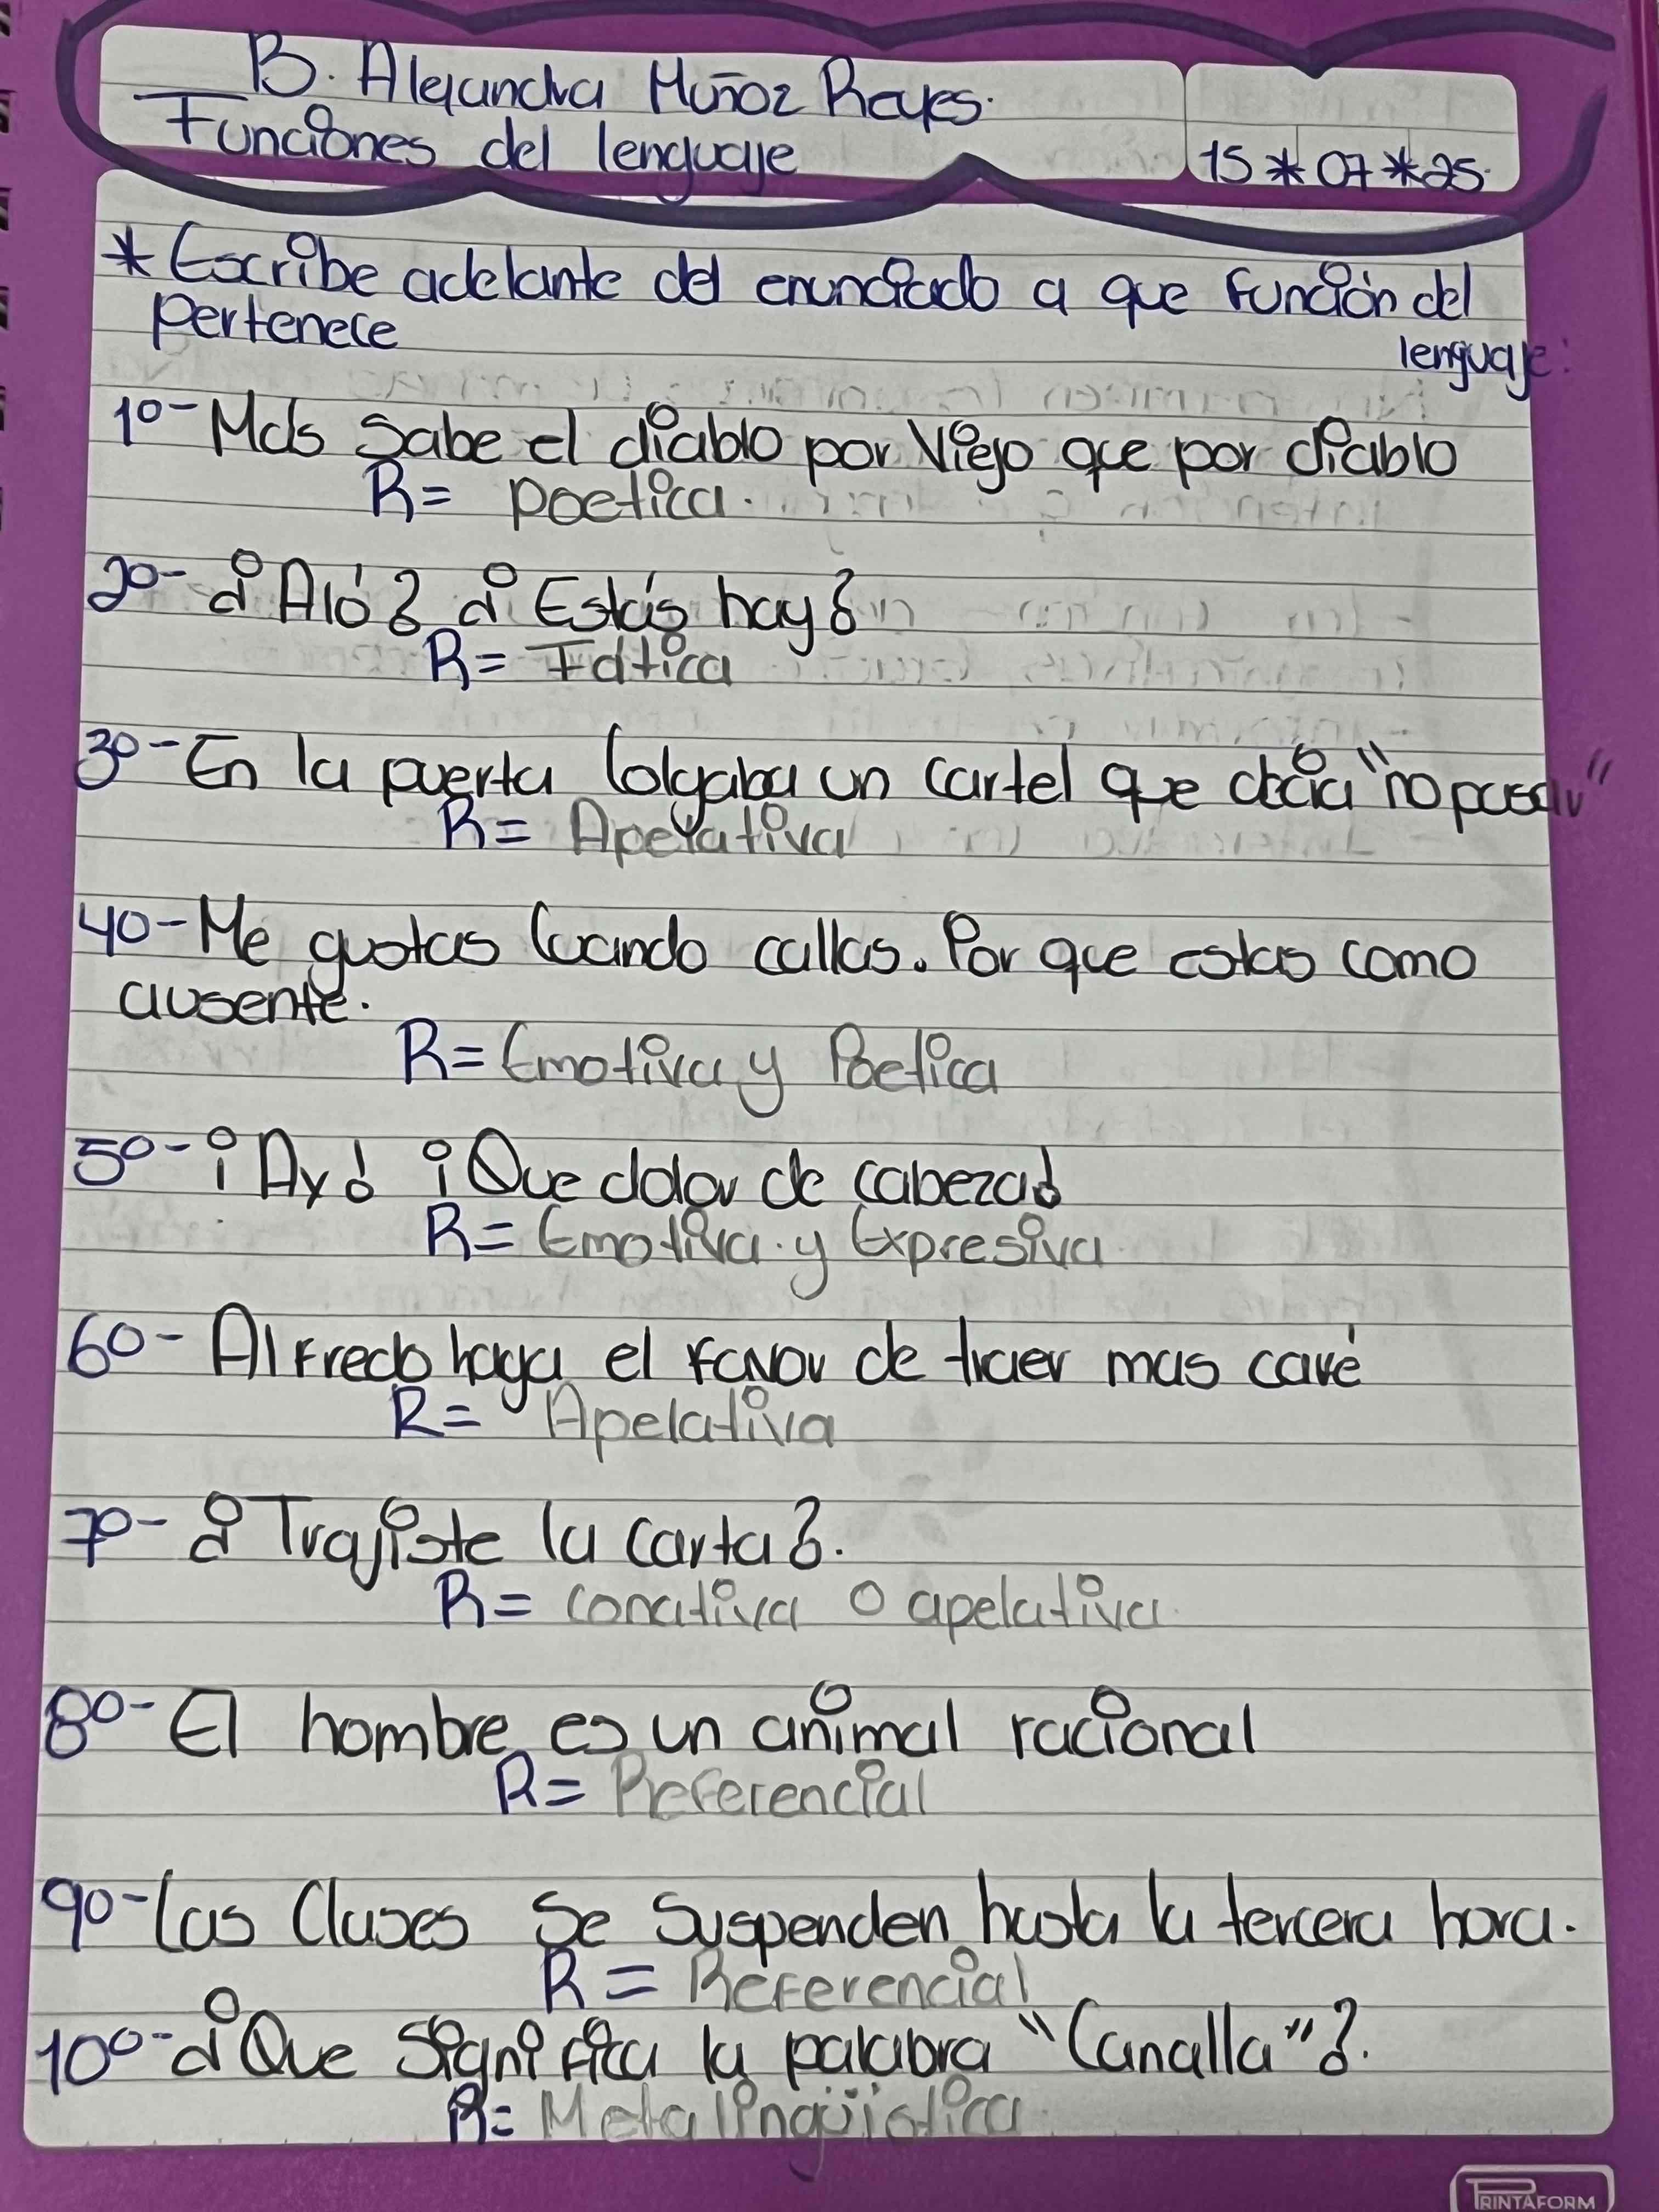 B. Alejandra Muñoz Reyes.
Funciones del lenguaje
15*07*25.
* Escribe adelante del enunciado a que función del
lenguaje:
pertenece
1o- Más sabe el diablo por viejo que por diablo
R= poetica.
2o- ¿Aló? ¿Estás hay?
R= Fática
3o- En la puerta colgaba un cartel que decia "no pasar"
R= Apelativa
4o- Me gustas cuando callas. Por que estas como
ausente.
R= Emotiva y Poetica
5o- ¡Ay! ¡Que dolor de cabeza!
R= Emotiva y Expresiva
6o- Alfredo haga el favor de traer mas café
R= Apelativa
7o- ¿Trajiste la carta?.
R= conativa o apelativa.
8o- El hombre es un animal racional
R= Referencial
9o- Las Clases se suspenden hasta la tercera hora.
R= Referencial
10o- ¿Que significa la palabra "Canalla"?.
R= Metalingüistica
PRINTAFORM